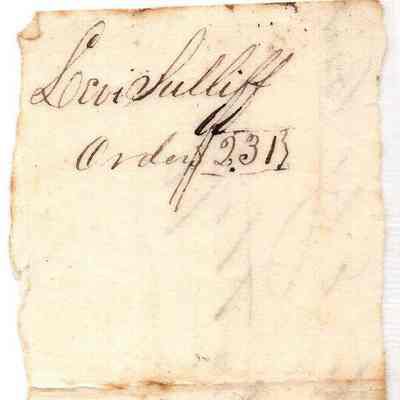 Levi Sulliff
Order $2.31